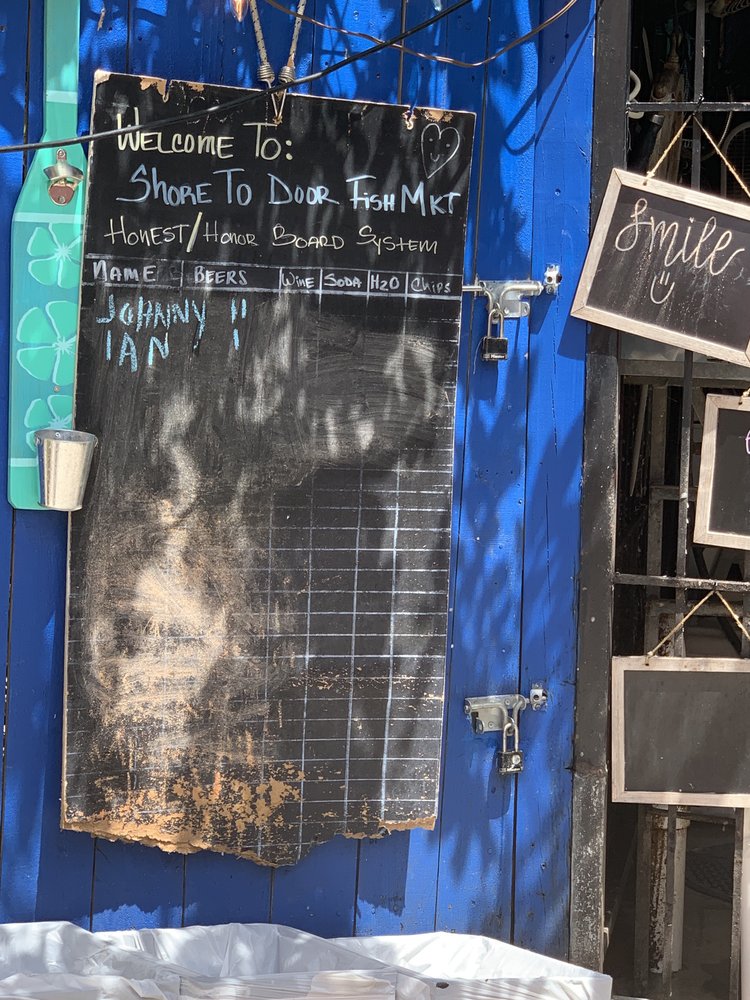 WELCOME TO:
SHORE TO DOOR FISH MKT
HONEST/HONOR BOARD SYSTEM
NAME BEERS WINE SODA H2O CHIPS
JOHNNY II
IAN I
Smile